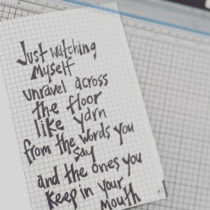 Just watching
Myself
unravel across
the floor
like yarn
from the words you
say
and the ones you
keep in your
Mouth